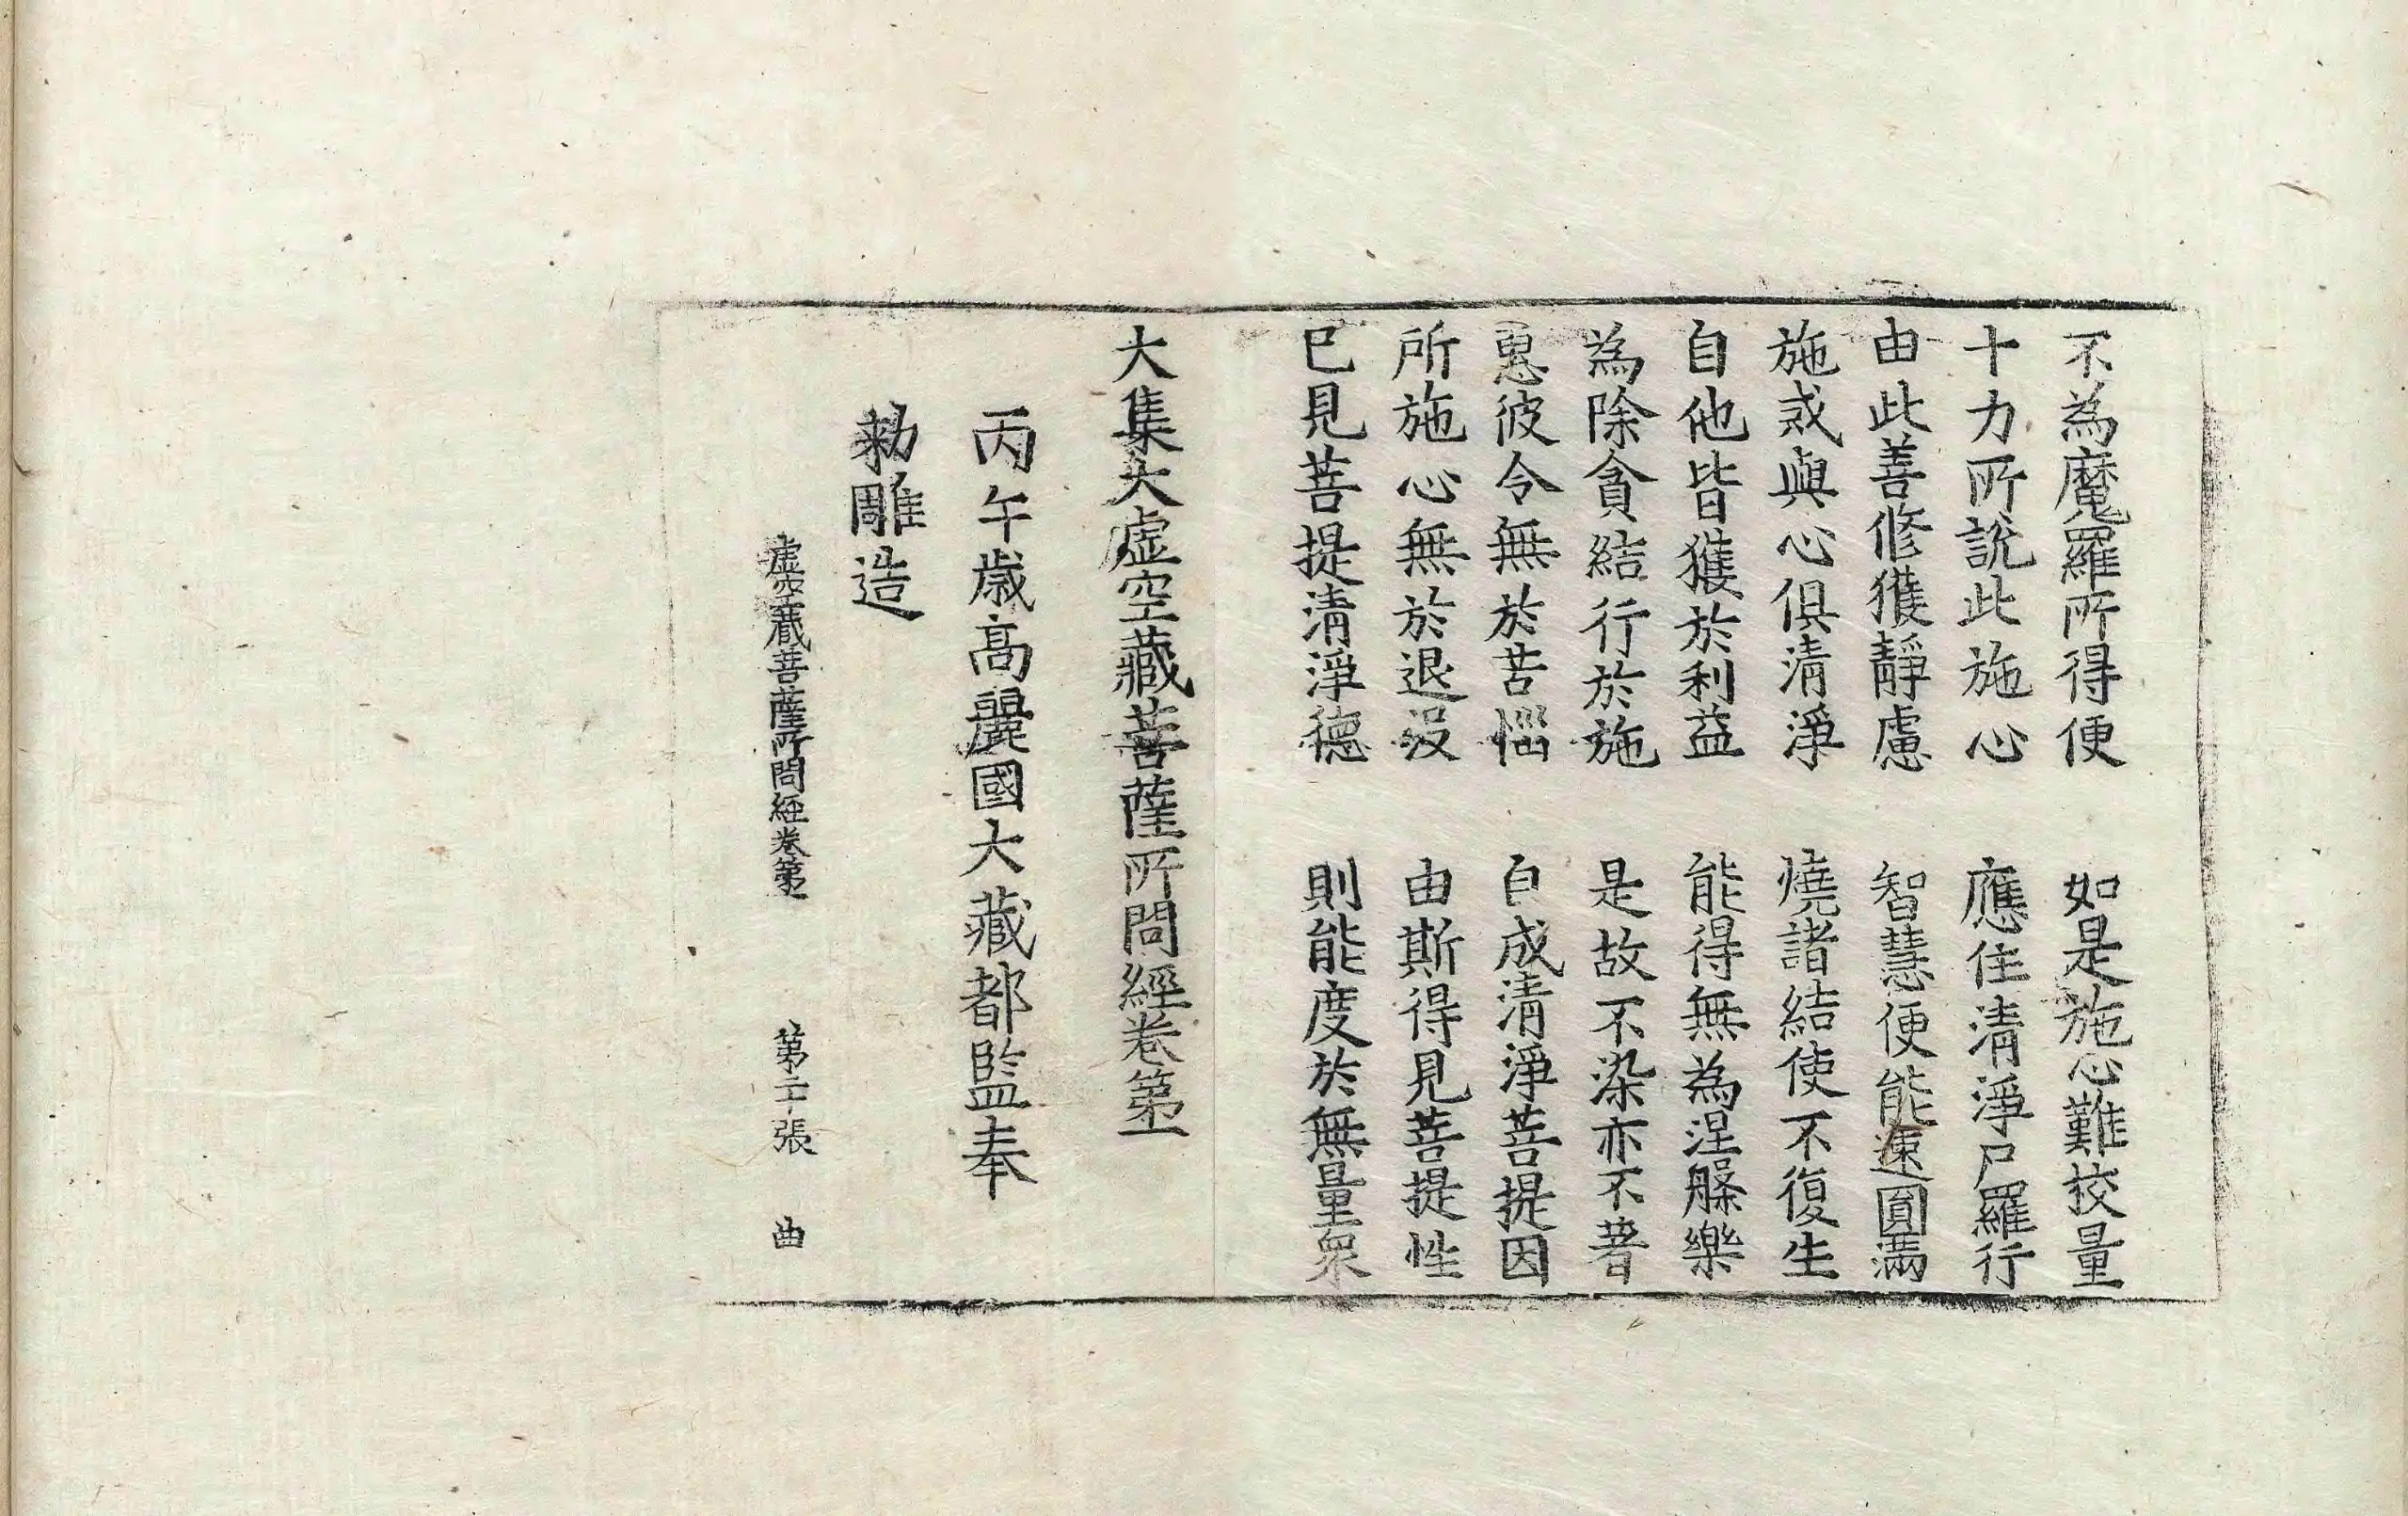 不為魔羅所得便　如是施心難校量
十力所說此施心　應住清淨尸羅行
由此善修獲靜慮　智慧便能速圓滿
施戒與心俱清淨　燒諸結使不復生
自他皆獲於利益　能得無為涅槃樂
為除貪結行於施　是故不染亦不著
愍彼令無於苦惱　自成清淨菩提因
所施心無於退沒　由斯得見菩提性
已見菩提清淨德　則能度於無量衆
大集大虛空藏菩薩所問經卷第一
丙午歲高麗國大藏都監奉
勅雕造
虛空藏菩薩所問經卷第一　第二十張　曲